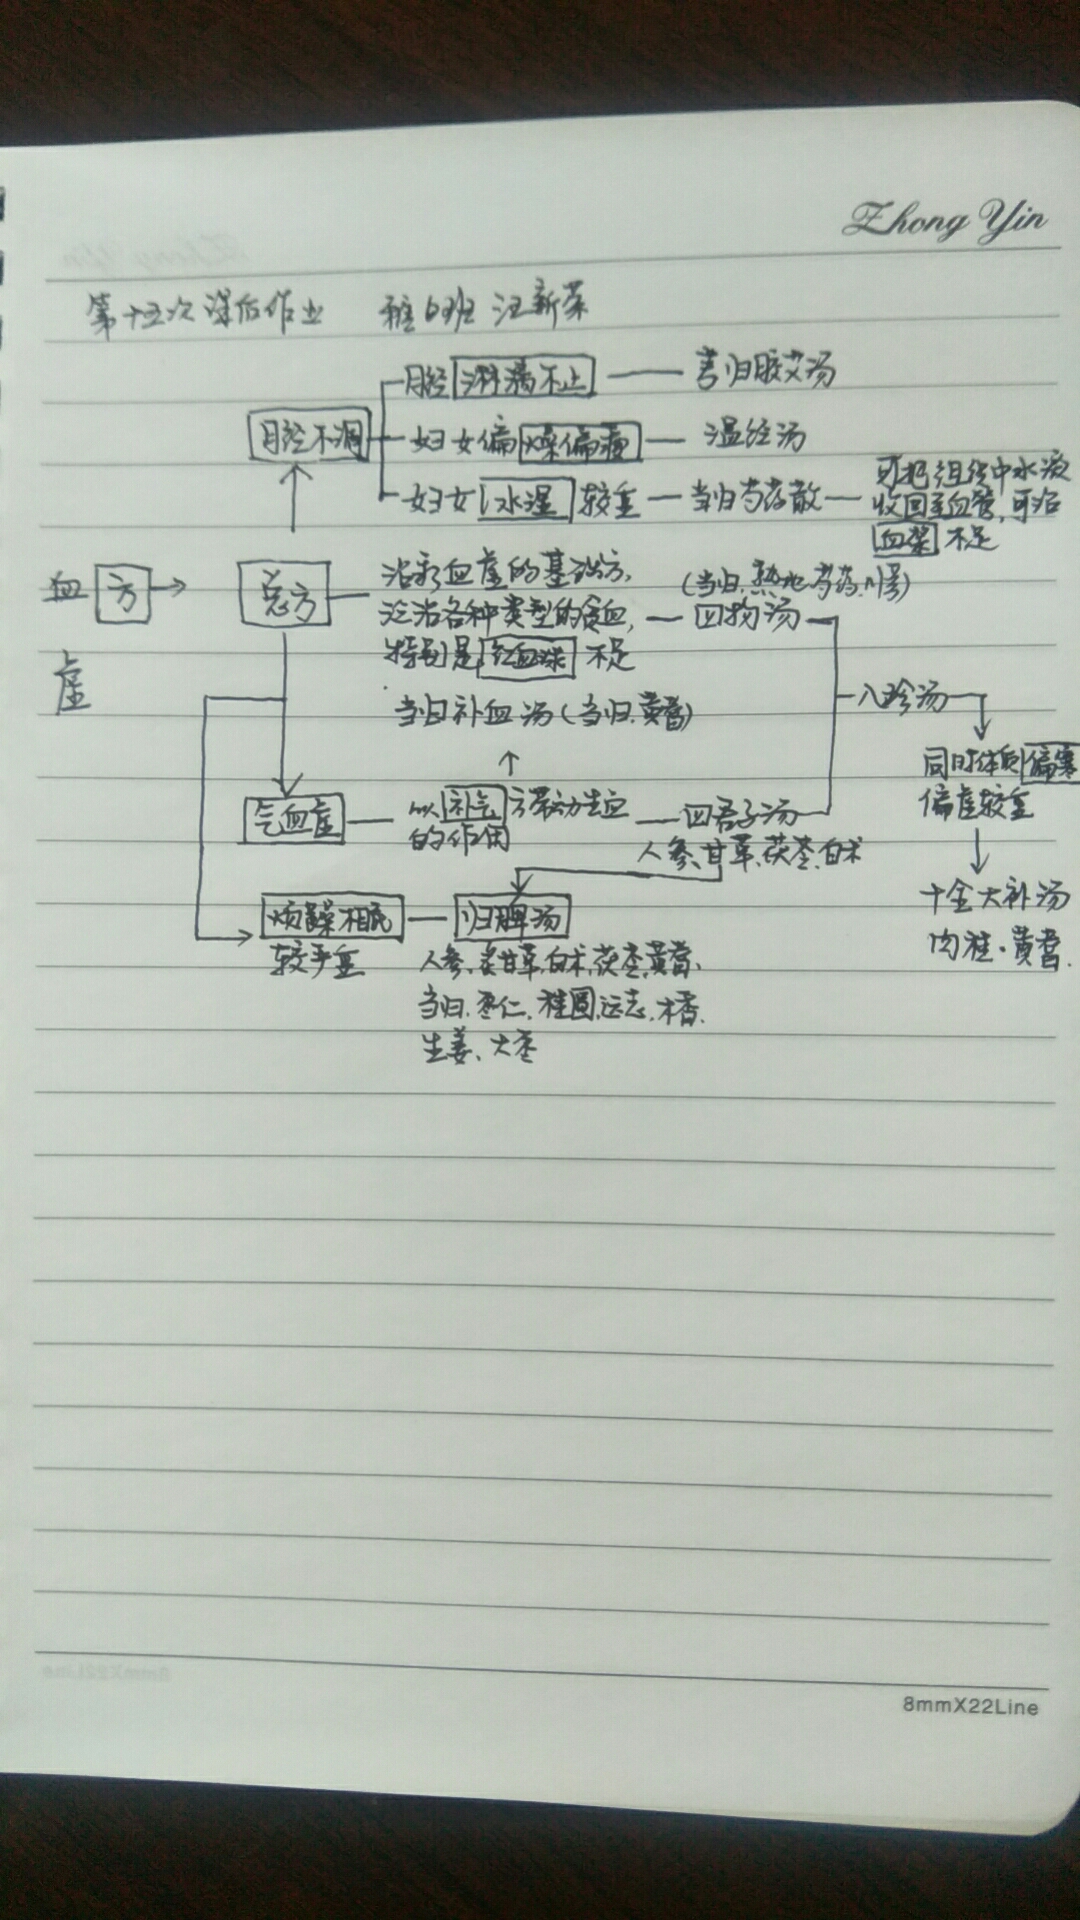 Zhong Yin
第十五次课后作业 雅6班 汪新荣
月经淋漓不止 —— 芎归胶艾汤
月经不调
妇女偏燥偏瘦 — 温经汤
妇女水湿较重 — 当归芍药散 — 可把组织中水液
收回至血管,可治
血浆不足
血方→ 总方
虚
治疗血虚的基础方,
泛治各种类型的贫血,
特别是红血球不足
(当归.熟地.芍药.川芎)
四物汤
当归补血汤(当归.黄耆)
八珍汤
同时体质偏寒
偏虚较重
气血虚 — 以补气方带动生血
的作用
四君子汤
人参.甘草.茯苓.白术
十全大补汤
肉桂.黄耆.
烦躁相眠
较严重
归脾汤
人参.炙甘草.白术.茯苓.黄耆.
当归.枣仁.桂圆.远志.木香.
生姜、大枣
8mmX22Line